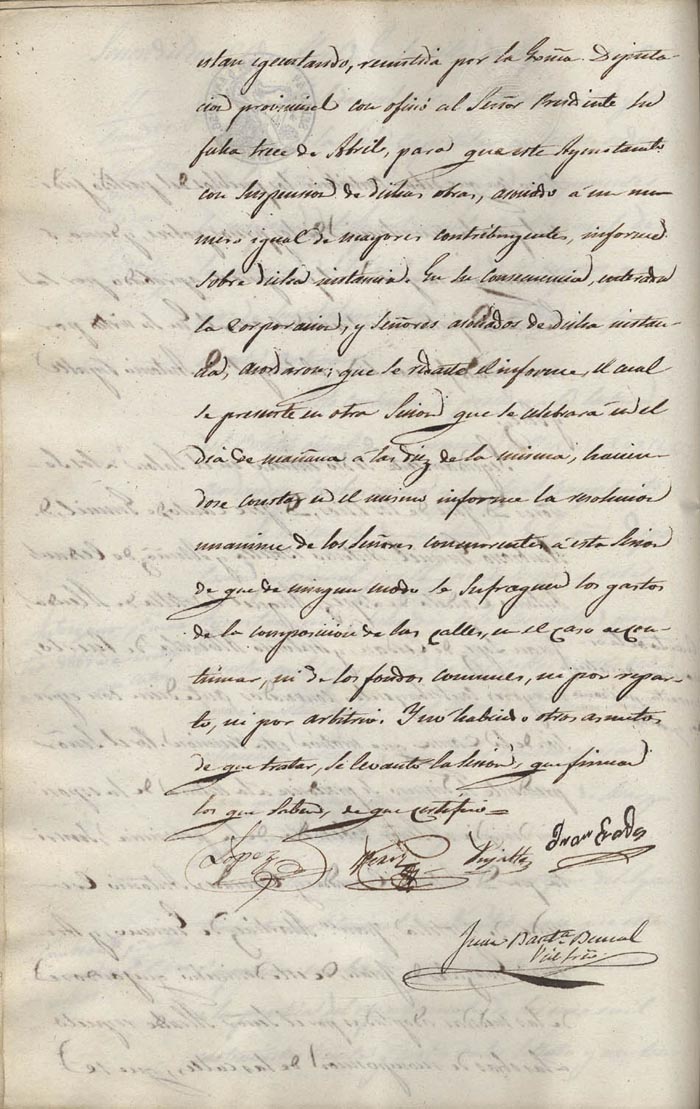 estan egecutando, remitida por la Exma. Diputa-
cion provincial con oficio al Señor Presidente su
fecha trece de Abril, para que este Ayuntamto.
con suspension de dichas obras, asociado á un nu-
mero igual de mayores contribuyentes, informe
sobre dicha instancia. En su consecuencia, enterada
la Corporacion, y Señores asociados de dicha instan-
cia, acordaron: que se redacte el informe, el cual
se presente en otra Sesion que se celebrará en el
dia de mañana a las diez de la misma, hacien-
dose constar en el mismo informe la resolucion
unanime de los Señores concurrentes á esta Sesion
de que de ningun modo se sufraguen los gastos
de la composicion de las calles, en el caso de con-
tinuar, ni de los fondos comunes, ni por repar-
to, ni por arbitrio. Y no habiendo otros asuntos
de que tratar, se levantó la Sesion, que firman
los que saben, de que certifico=
Lopez
Juan
Juan Bauta. Bernal